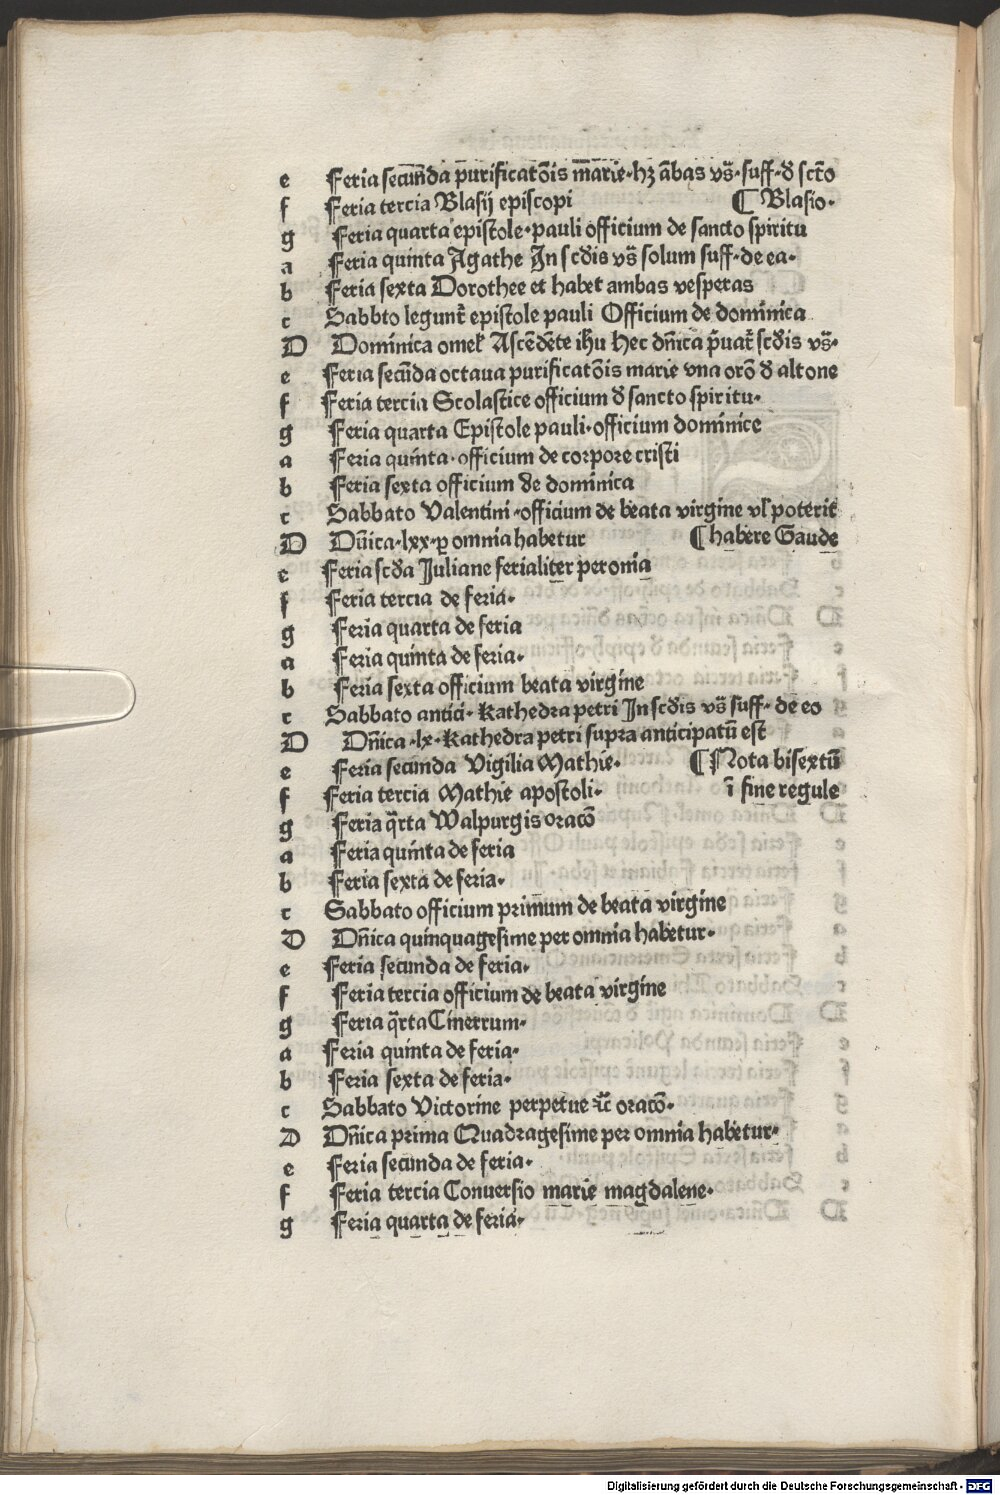 e Feria secunda purificatōis marie·hȝ ābas vs̄·suff·ꝺ sctō
f Feria tercia Blasij episcopi ¶ Blasio·
g Feria quarta epistole·pauli officium de sancto spiritu
a Feria quinta Agathe In scdis vs̄ solum suff·de ea·
b Feria sexta Dorothee et habet ambas vesperas
c Sabbto legunt̄ epistole pauli Officium de dominica
D Dominica omel̓ Ascēdēte ihū hec dn̄ica p̄uat̄ scdis vs̄·
e Feria secūda octaua purificatōis marie vna orō ꝺ altone
f Feria tercia Scolastice officium ꝺ sancto spiritu·
g Feria quarta Epistole pauli·officium dominice
a Feria quinta·officium de corpore cristi
b Feria sexta officium de dominica
c Sabbato Valentini·officium de beata virgine vl̓ poterit
D Dn̄ica·lxx·ꝑ omnia habetur ¶ habere Gaude
e Feria scda Juliane ferialiter per om̄ia
f Feria tercia de feria·
g Feria quarta de feria
a Feria quinta de feria·
b Feria sexta officium beata virgine
c Sabbato antici· Kathedra petri In scdis vs̄ suff· de eo
D Dn̄ica·lx·Kathedra petri supra anticipatū est
e Feria secunda Vigilia Mathie· ¶ Nota bisextū
f Feria tercia Mathie apostoli· ī fine regule
g Feria q̄rta Walpurgis oracō
a Feria quinta de feria
b Feria sexta de feria·
c Sabbato officium primum de beata virgine
D Dn̄ica quinquagesime per omnia habetur·
e Feria secunda de feria·
f Feria tercia officium de beata virgine
g Feria q̄rta Cinerrum·
a Feria quinta de feria·
b Feria sexta de feria·
c Sabbato Victorine perpetue ⁊c̄ oracō·
D Dn̄ica prima Quadragesime per omnia habetur·
e Feria secunda de feria·
f Feria tercia Conuersio marie magdalene·
g Feria quarta de feria·
Digitalisierung gefördert durch die Deutsche Forschungsgemeinschaft - DFG